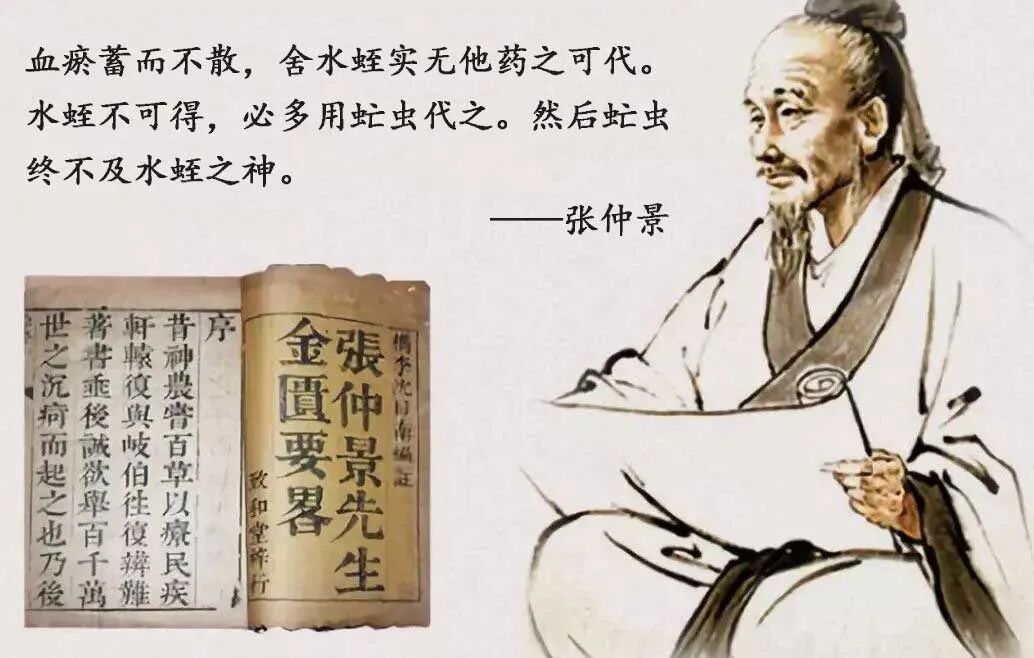 血瘀蓄而不散，舍水蛭实无他药之可代。
水蛭不可得，必多用虻虫代之。然后虻虫
终不及水蛭之神。
——张仲景
檇李沈目南編註
張仲景先生
金匱要畧
致和堂梓行
序
昔神農嘗百草以療民疾
軒轅復與岐伯徃復辨難
著書垂後誠欲舉百千萬
世之沉疴而起之也乃後